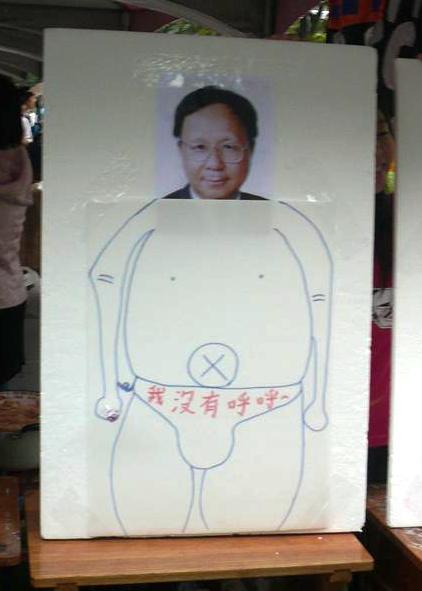 我沒有呼呼~